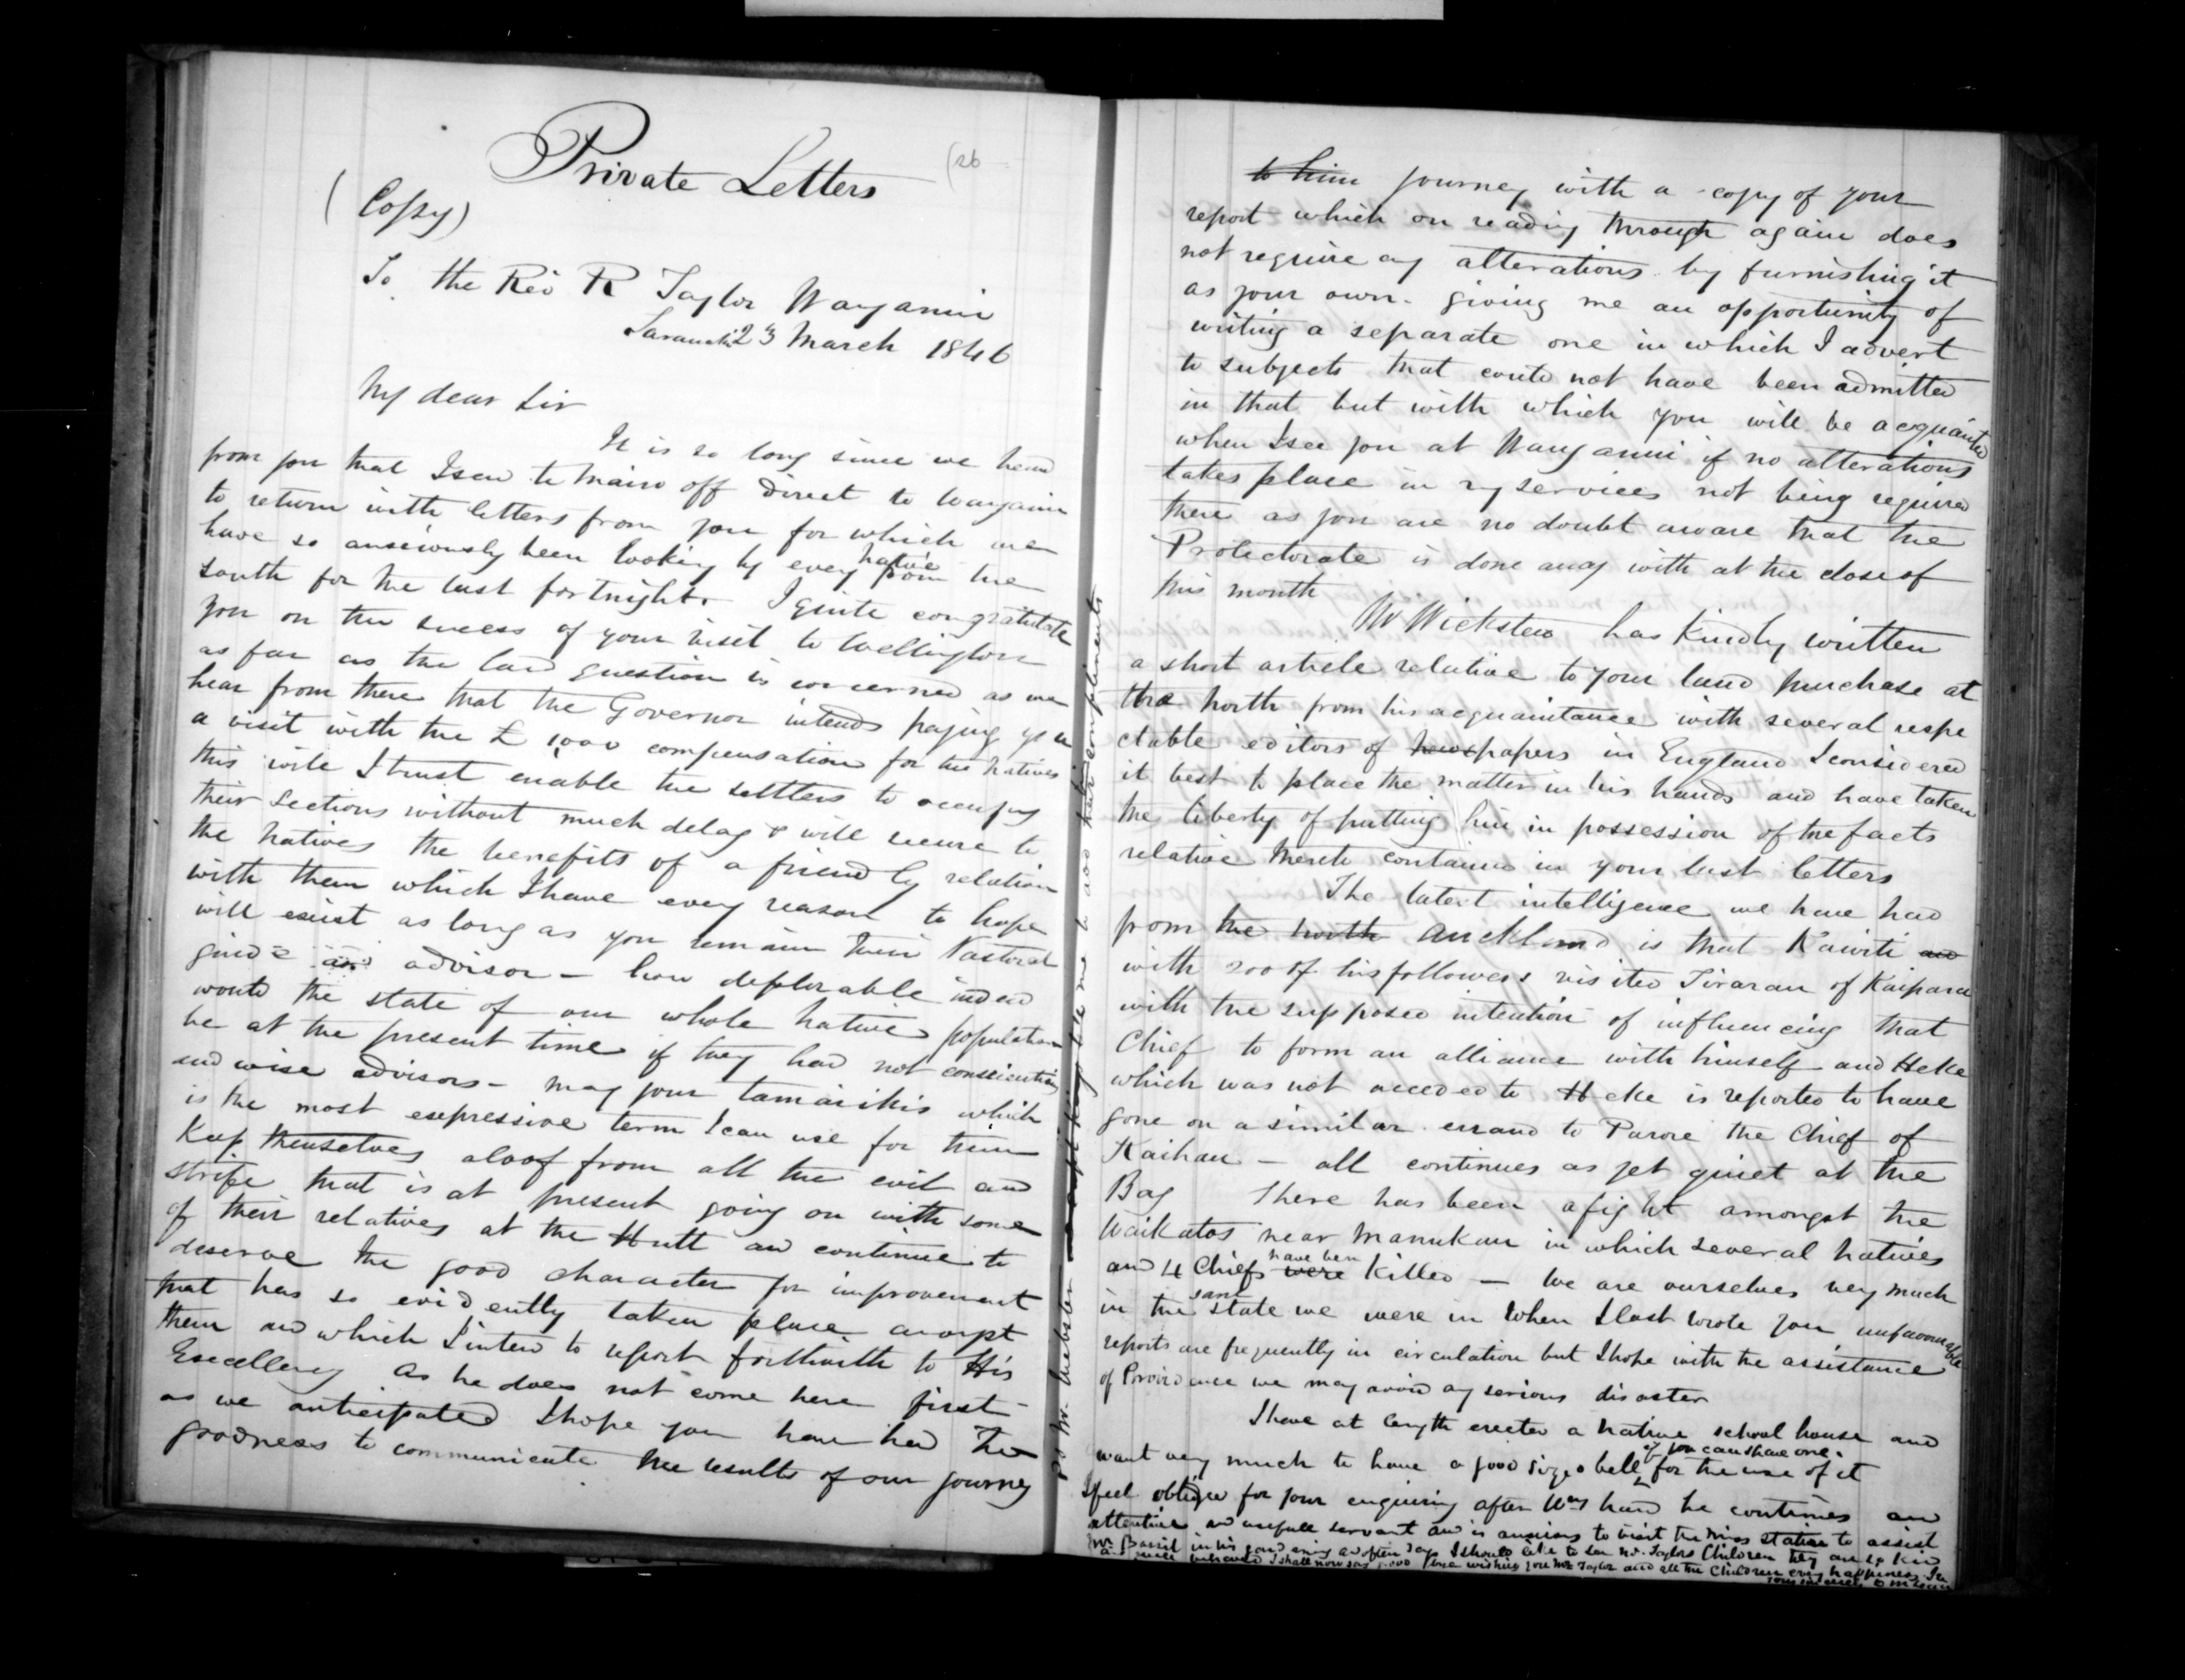 Private Letters
(26
(Copy)
To the Rev R Taylor Wanganui
Taranaki 23 March 1846
My dear Sir
It is so long since we heard
from you that I send te Mairo off direct to Wanganui
to return with letters from you for which we
have so anxiously been looking by every native from the
south for the last fortnight. I quite congratulate
you on the success of your visit to Wellington
as far as the land question is concerned as we
hear from there that the Governor intends paying you
a visit with the £1000 compensation for the natives
this will I trust enable the settlers to occupy
their sections without much delay & will secure to
the natives the benefits of a friendly relation
with them which I have every reason to hope
will exist as long as you remain their Pastoral
guide and advisor – how deplorable indeed
would the state of our whole native population
be at the present time if they had not conscientious
and wise advisors – may your tamaikis which
is the most expressive term I can use for them
keep themselves aloof from all the evil and
strife that is at present going on with some
of their relatives at the Hutt and continue to
deserve the good character for improvement
that has so evidently taken place amongst
them and which I intend to report forthwith to His
Excellency As he does not come here first
as we anticipated I hope you have had the
goodness to communicate the results of our journey
to him journey with a copy of your
report which on reading through again does
not require any alterations by furnishing it
as your own. giving me an opportunity of
writing a separate one in which I advert
to subjects that could not have been admitted
in that but with which you will be acquainted
when I see you at Wanganui if no alterations
takes place in my services not being required
there as you are no doubt aware that the
Protectorate is done away with at the close of
this month
Mr Wicksteed has kindly written
a short article relative to your land purchase at
the north from his acquaintance with several respe
ctable editors of newspapers in England I considered
it best to place the matter in his hands and have taken
the liberty of putting him in possession of the facts
relative thereto contained in your last letters
The latest intelligence we have had
from the north Auckland is that Kawiti and
with 200 of his followers visited Tirarau of Kaipara
with the supposed intention of influencing that
Chief to form an alliance with himself and Heke
which was not acceded to Heke is reported to have
gone on a similar errand to Parore the Chief of
Kaihau – all continues as yet quiet at the
Bay There has been a fight amongst the
Waikatos near Manukau in which several natives
and 4 Chiefs were have been killed – We are ourselves very much
in the same state we were in when I last wrote you unfavourable
reports are frequently in circulation but I hope with the assistance
of Providence we may avoid any serious disaster
I have at length erected a native school house and
want very much to have a good sized bell if you can spare one. for the use of it
I feel obliged for your enquiring after Wm he continues an
attentive and usefull servant and is anxious to visit the Miss station to assist
Mr Barrit in his gardening and often says I should like to see Mr Taylors Children they are so kind
and well behaved I shall now say good bye wishing you Mrs Taylor and all the Children every happiness
yours sincerely D McLean
PS Mr Webster to add their compliments